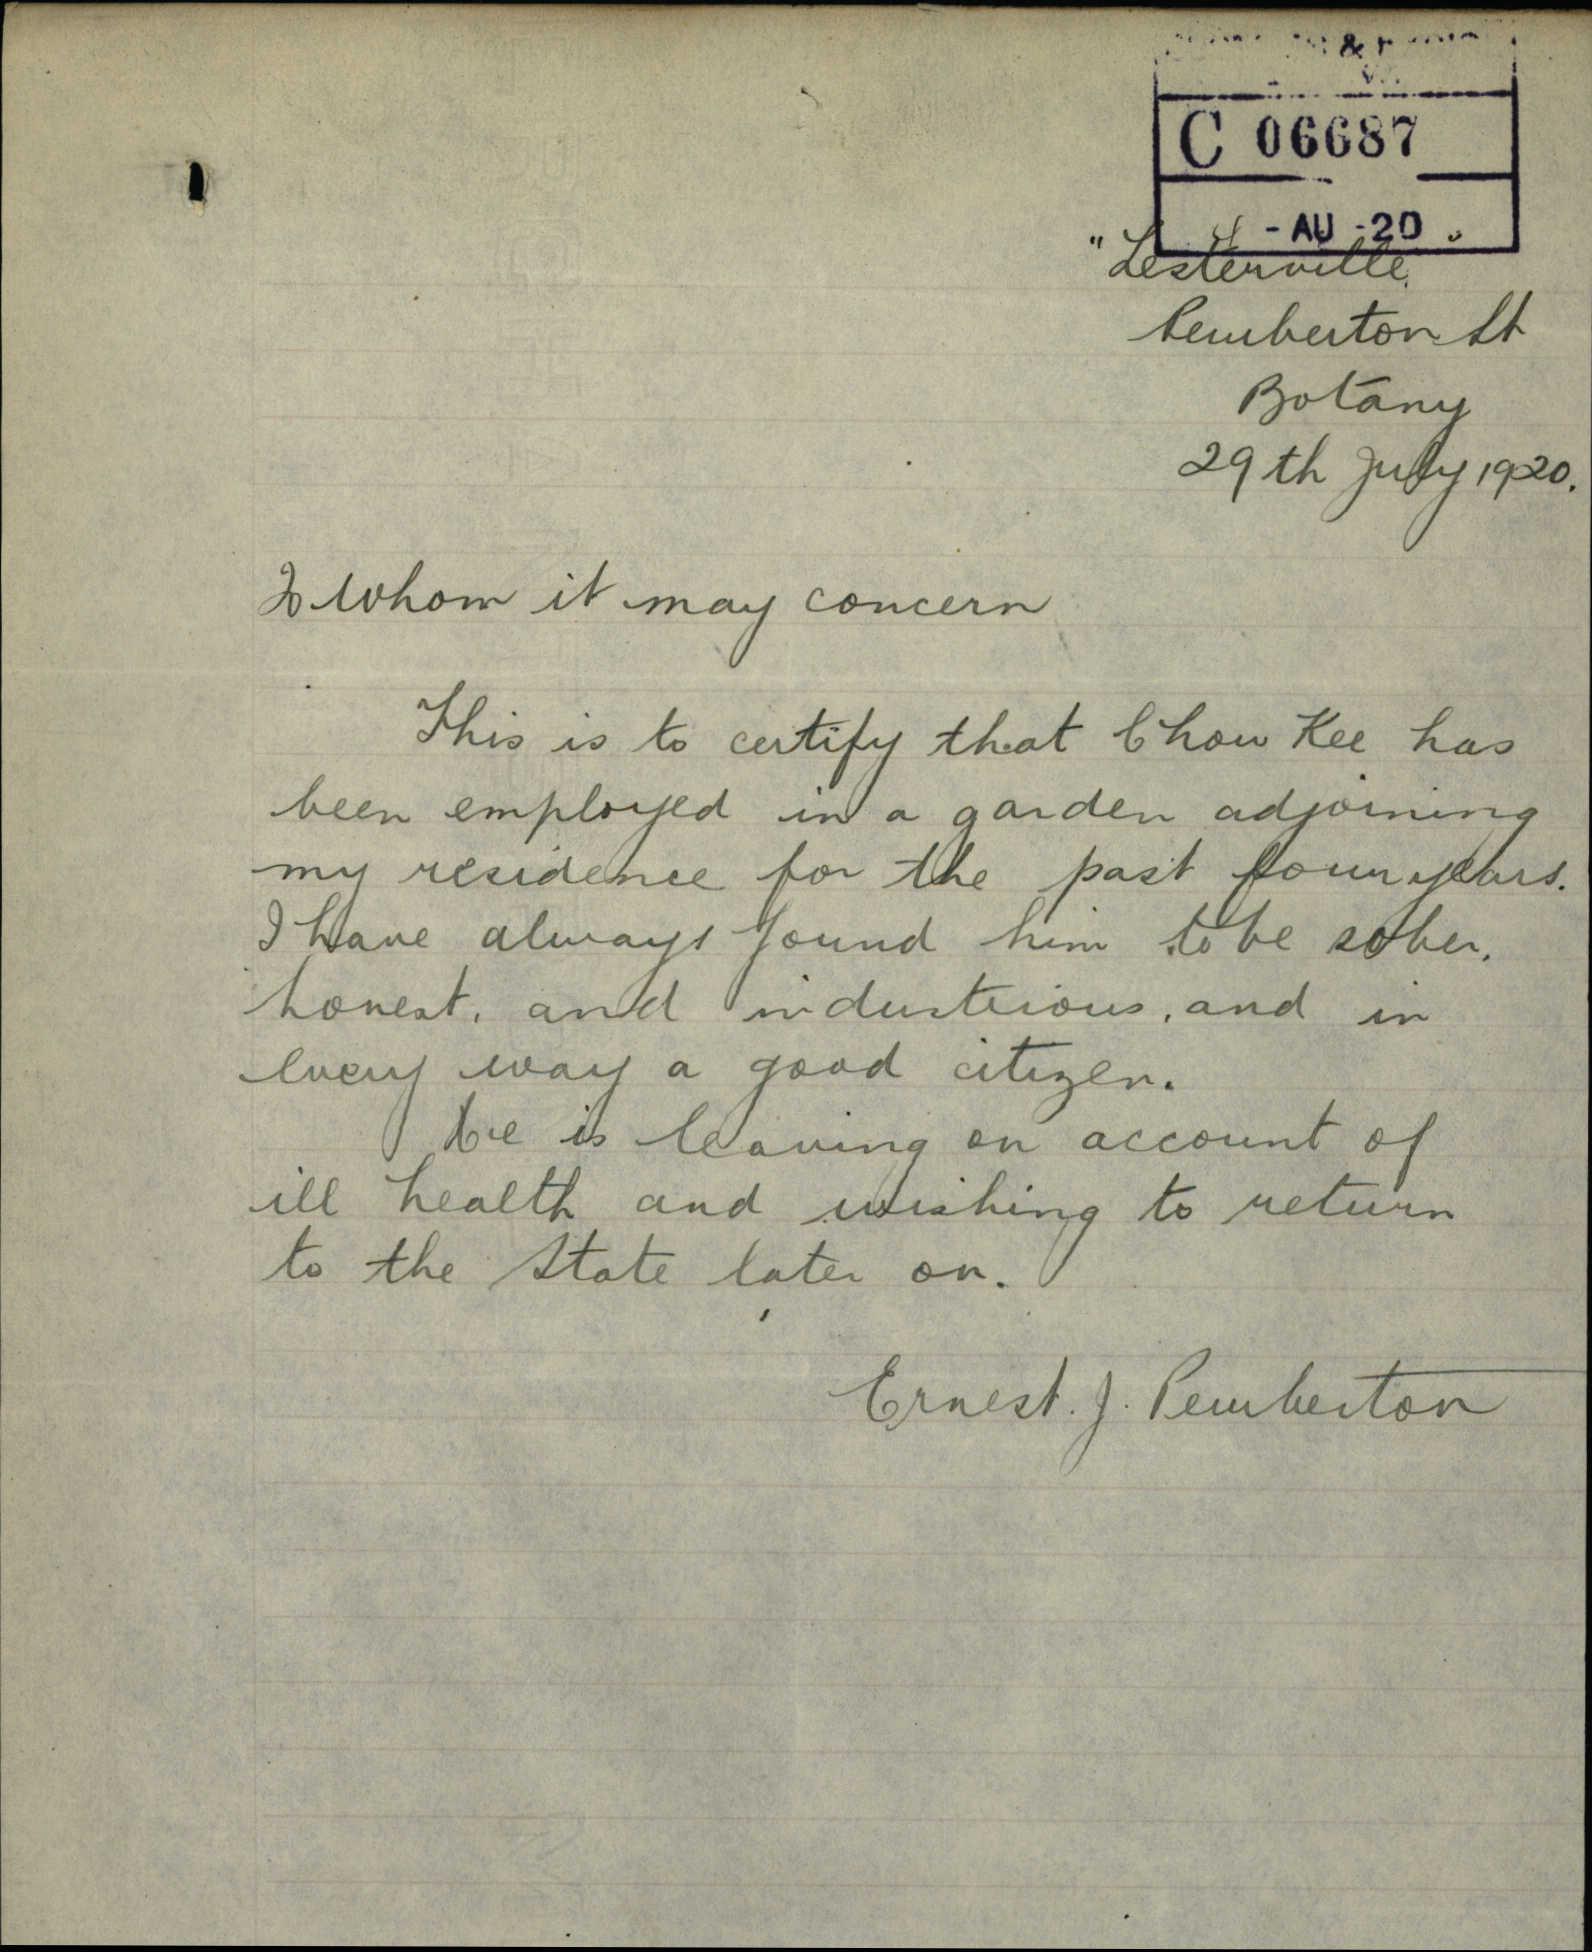 &
C 06687
4 - AU - 20
"Lesterville"
Pemberton St
Botany
29th July 1920.
To Whom it may concern
This is to certify that Chow Kee has
been employed in a garden adjoining
my residence for the past four years.
I have always found him to be sober,
honest, and industrious, and in
every way a good citizen.
He is leaving on account of
ill health and wishing to return
to the State later on.
Ernest. J. Pemberton